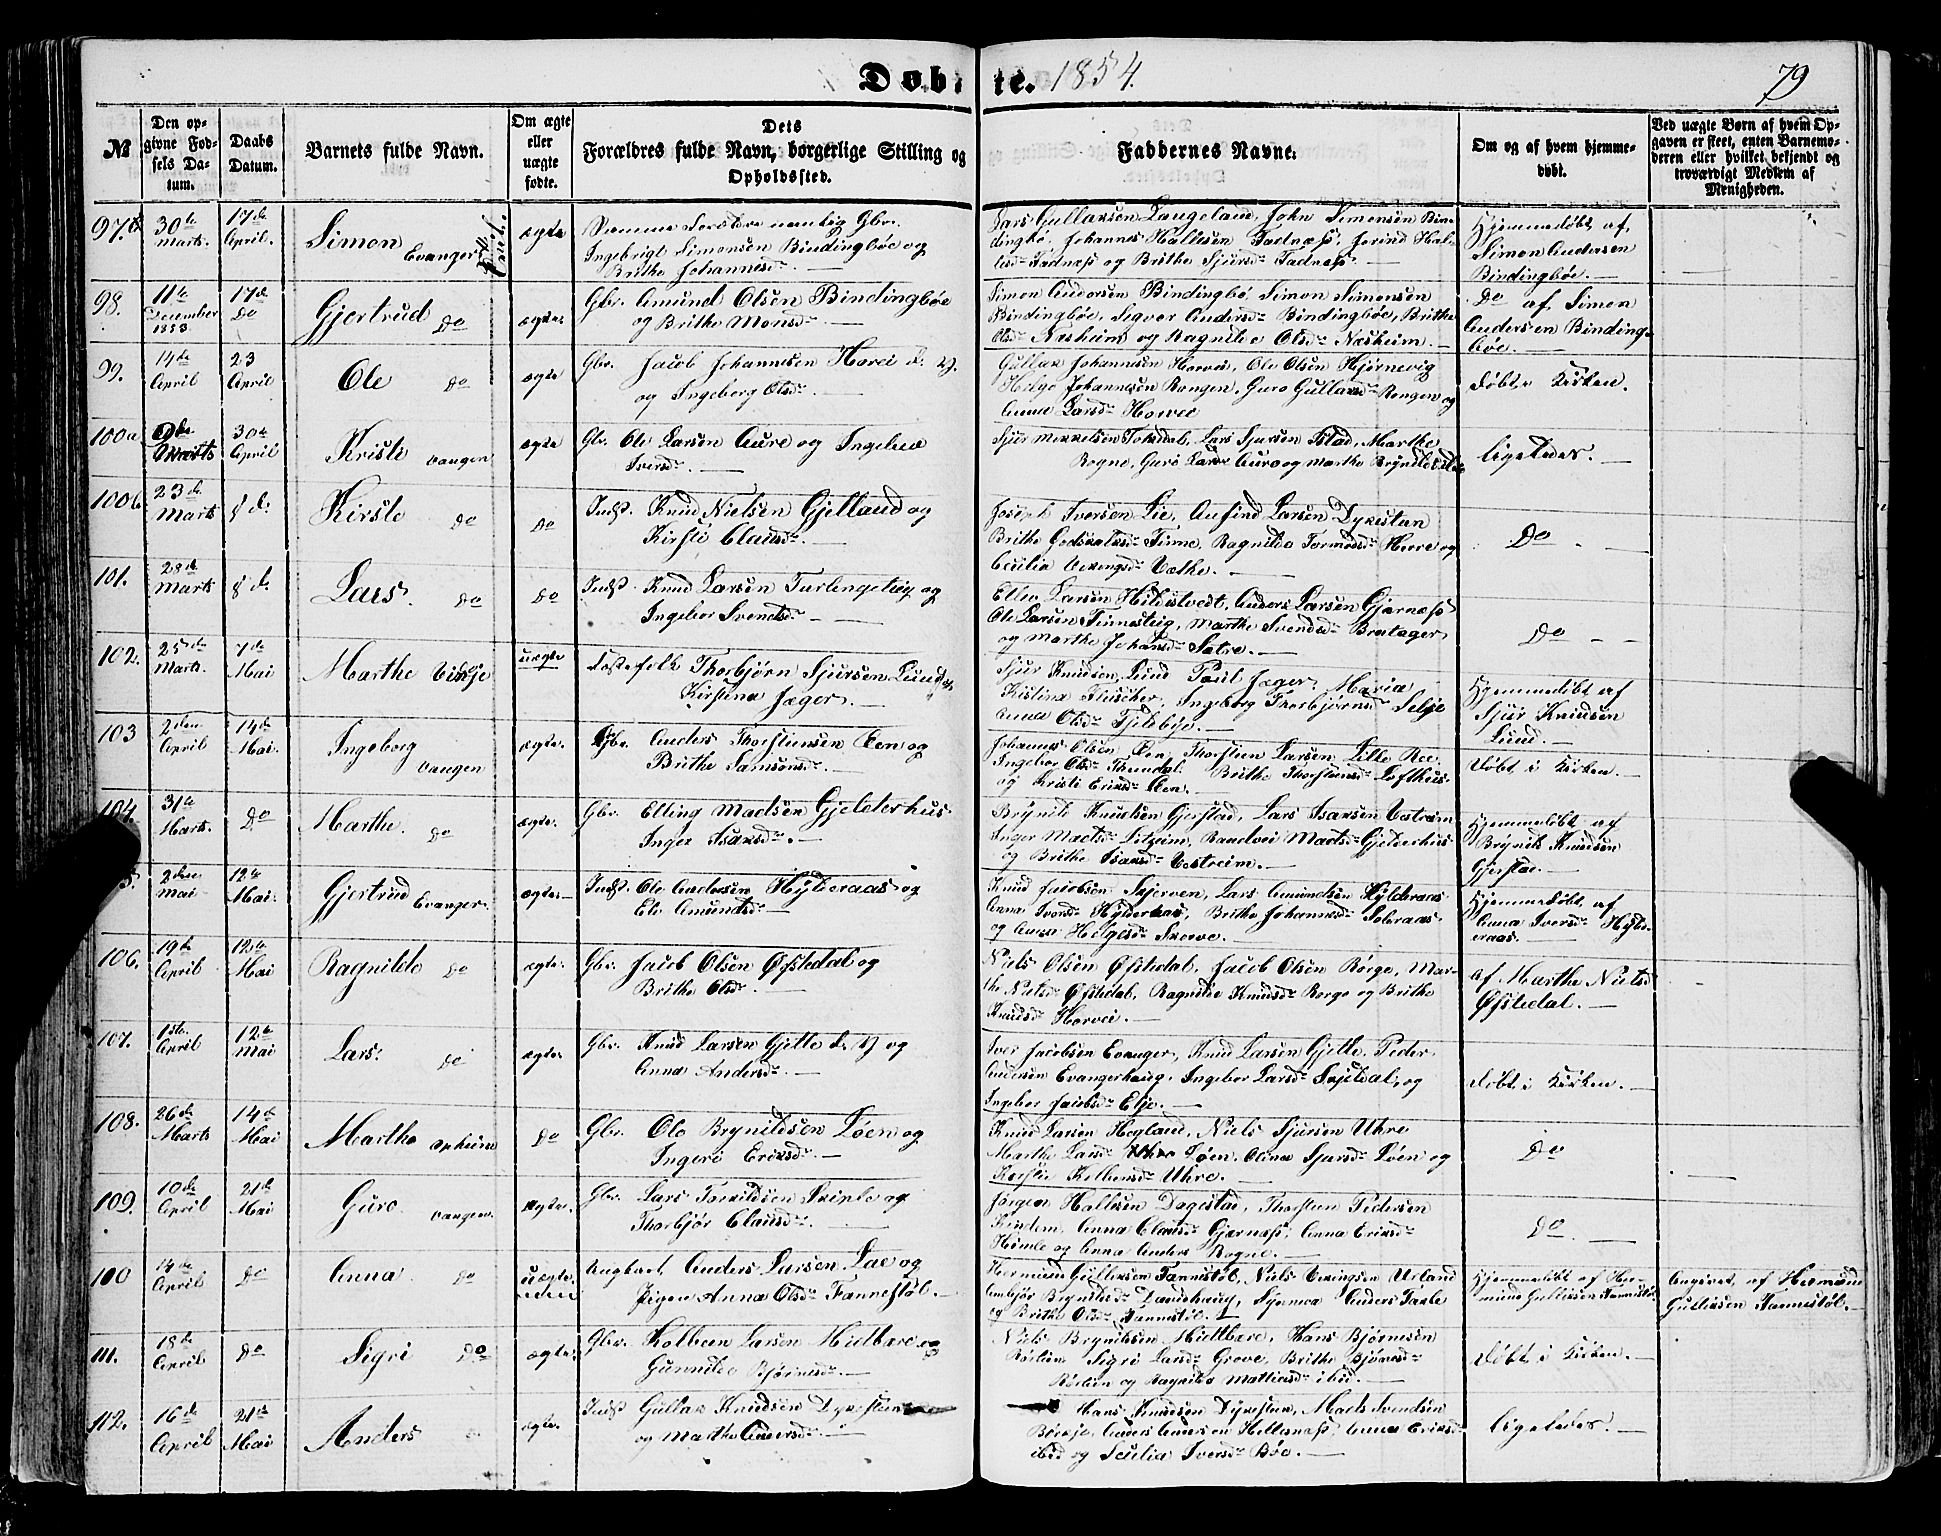 Døbte. 1854.
79
№
Den opgivne Fødsels Datum.
Daabs Datum.
Barnets fulde Navn.
Om ægte eller uægte fødte.
Dets Forældres fulde Navn, borgerlige Stilling og Opholdssted.
Faddernes Navne.
Om og af hvem hjemmedøbt.
Ved uægte Børn af hvem Opgaven er skeet, enten Barnemoderen eller hvilket bekjendt og troværdigt Medlem af Menigheden.
97.b 30te Marts. 17de April. Simon Evanger ægte
Samme Forældre nemlig Gbr.
Ingebrigt Simonsen Bindingbøe og
Brithe Johannesd.
Lars Gullaksen Langeland, John Simonsen Bin-
dingbø, Johannes Hallesen Fadnæss,
Fadnæss og Brithe Sjursd. Fadnæss.
Hjemmedøbt af
Simon Andersen
Bindingbøe.
98. 11te December 1853 17de Do Gjertrud Do ægte.
Gbr. Amund Olsen Bindingbøe
og Brithe Monsd.
Simon Andersen Bindingbø, Simon Simonsen
Bindingbøe, Sigvor Andersd. Bindingbøe, Brithe
Olsd. Næsheim og Ragnilde Olsd. Næsheim.
Do af Simon
Andersen Binding-
bøe.
99. 14de April 23 April Ole Do ægte
Gbr. Jacob Johannesen Horvei d. y.
og Ingeborg Olsd.
Gullak Johannesen Horvei, Ole Olsen Hjørnevig
Helge Johannesen Rongen, Guro Gullaksd. Rongen og
Anna Larsd. Horvei
Døbt i Kirken.
100a Marts 30te April Kristi Vangen ægte
Gbr. Ole Larsen Aure og Ingeleiv
Iversd.
Sjur Mikkelsen Tokedal, Lars Sjursen Istad, Marthe
Rogne, Guro Larsd. Aure og Marthe Brynilds
ligeledes.
100b 23de Marts Kirsti Do Do
Indst. Knud Nielsen Gjelland og
Kirsti Clausd.
Joseph Iversen Lie, Anfind Larsen Dykesten
Brithe Godskalksd. Finne, Ragnilda Tormodsd. Herre og
Cecilia Vikingsd. Væthe.
Do
101. 28de Marts Lars. Do Do
Indst. Knud Larsen Turlengehoug og
Ingebor Svendsd.
Ellev Larsen Hildistvedt, Anders Larsen Gjærnæss
Ole Larsen Finnesteig, Marthe Svendsd. Bratager
og Marthe Johansd. Sætre.
Do
102. 25de Marts. 7de Mai Marthe Vikøje uægte
Løsefolk Thorbjørn Sjursen Lund og
Kirstina Jæger.
Sjur Knudsen Lund Poul Jæger, Maria
Kistina Fleischer, Ingeborg Thorbjørnsd. Selje
Anna Olsd. Fjelsbye.
Hjemmedøbt af
Sjur Knudsen
Lund.
103 2den April 14de Mai. Ingeborg Vangen ægte.
Gbr. Anders Thorstensen Øen og
Brithe Samsonsd.
Johannes Olsen Øen, Thorsten Larsen Lille Ree
Ingebor Olsd. Thundal Brithe Thorstensd. Lofthus
og Kristi Eriksd. Øen.
Døbt i Kirken.
104 31te Marts. Do Marthe. Do ægte.
Gbr. Elling Madsen Gjelderhus
Inger Isaksd.
Brynild Knudsen Gjerstad, Lars Isaksen Vestrem
Inger Madsd. Litzeim, Randvei Madsd. Gjelderhus
og Brithe Isaksd. Vestreim.
Hjemmedøbt af
Brynild Knudsen
Gjerstad.
2den Mai 12te Mai. Gjertrud Evanger. ægte.
Indst. Ole Andersen Hylderaas og
Eli Amundsd.
Knud Jacobsen Skjerven, Lars Amundsen Hylderaas
Anna Iversd. Hylderaas, Brithe Johannesd. Soleraas
og Anna Helgesd. Skorve.
Hjemmedøbt af
Anna Iversd. Hylde-
raas.
106. 19de April 12te Mai Ragnilde Do ægte.
Gbr. Jacob Olsen Øfstedal og
Brithe Olsd.
Niels Olsen Øfstedal, Jacob Olsen Rørge, Mar-
the Nielsd. Øfstedal, Ragnilde Knudsd. Rørge og Brithe
Knudsd. Horvei.
af Marthe Nielsd.
Øfstedal.
107. 1ste April 12te Mai Lars. Do ægte.
Gbr. Knud Larsen Gjelle d. y og
Anna Andersd.
Iver Jacobsen Evanger, Knud Larsen Gjelle, Peder
Andersen Evangerhaug, Ingebor Larsd. Skjeldal, og
Ingebor Jacobsd. Elje.
Døbt i Kirken.
108. 26de Marts 14de Mai Marthe Opheim Do
Gbr. Ole Brynildsen Løen og
Ingeri Eriksd.
Knud Larsen Hegland, Niels Sjursen Uhre
Marthe Larsd. Løen, Anna Sjursd. Løen og
Kirstie Kolbensd. Uhre.
Do
109. 10de April 21de Mai Guro. Vangen. Ægte.
Gbr. Lars Torkildsen Skiple og
Thorbjør Clausd.
Jørgen Hallesen Dagestad, Thorsten Pedersen
Kindem, Anna Clausd. Gjærnæss, Anna Eriksd.
Hømle og Anna Anders Rogne.
Do.
100 14de April Do Anna. Do uægte.
Ungkarl Anders Larsen Lae og
Pigen Anna Olsd. Fannestøl.
Hermund Gulleksen Fannestøl, Niels Vikingsen Urland
Brynildsd. Landshaug, Synneva Anders Takle
og Brithe Olsd. Fannestøl.
Hjemmedøbt af Her-
mund Gulleksen Fannestøl
Angivet af Hermund
Gulleksen Fannestøl.
111. 18de April Do Sigri Do ægte.
Gbr. Kolbeen Larsen Midtbøre og
Gunnilde Bjørnesd.
Niels Brynildsen Midtbøre, Hans Bjørnesen
Rølien Sigri Larsd. Grove, Brithe Bjørnesd.
Rølien og Ragnilda Mathiasd. ibid.
Døbt i Kirken.
112. 16de April 21de Mai Anders ægte.
Indst Gullak Knudsen Dykesteen
og Marthe Andersd.
Hans Knudsen Dykesten, Mads Svendsen
Børkje, Anders Andersen Hellesnæss, Anna Eriksd.
ibid og Scicilia Iversd. Bøe.
ligeledes.